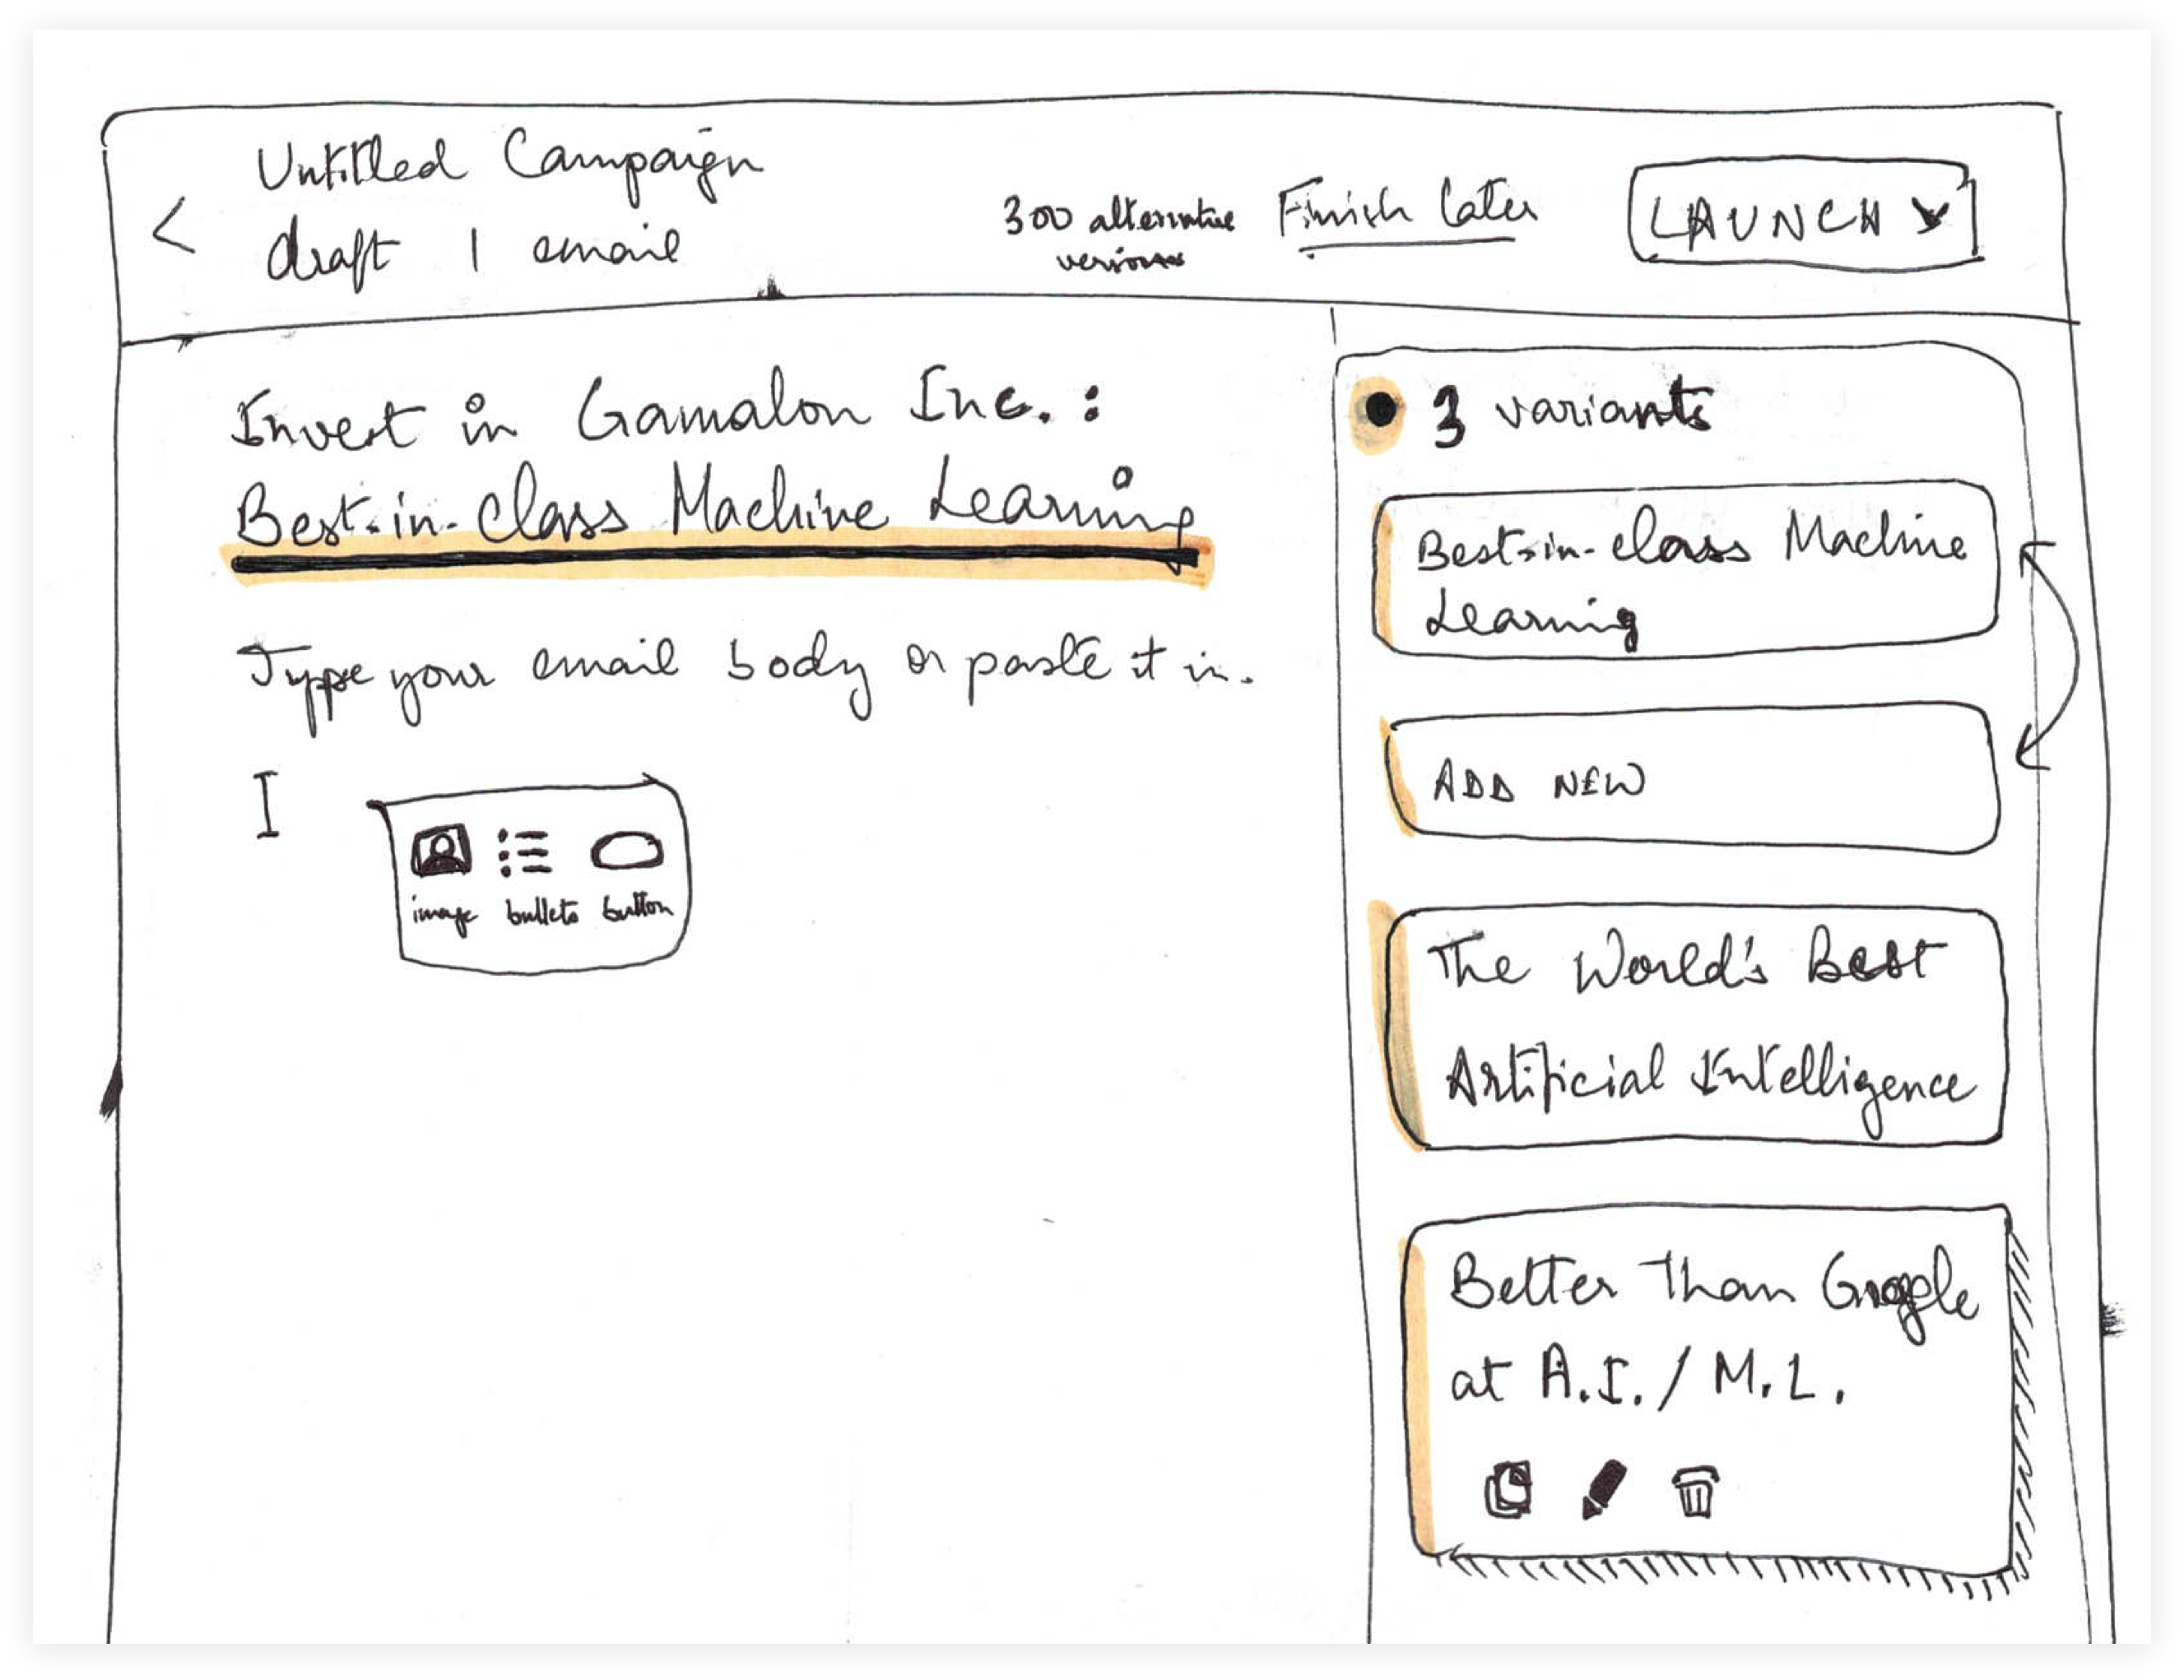 Untitled Campaign
< draft | email
300 alternative
versions
Finish later
LAUNCH
Invest in Gamalon Inc. :
Best-in-class Machine Learning
Type your email body or paste it in.
image bullets button
3 variants
Best-in-class Machine
Learning
ADD NEW
The World's Best
Artificial Intelligence
Better Than Google
at A.I. / M.L.